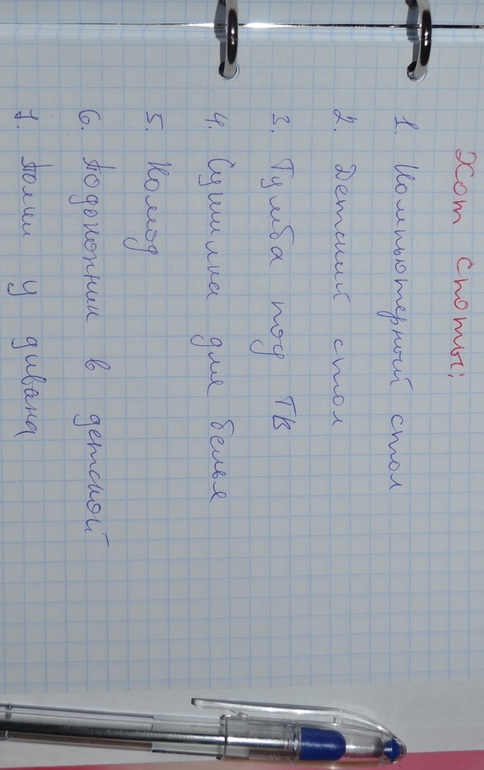 Хот споты:
1. Компьютерный стол
2. Детский стол
3. Тумба под ТВ
4. Сушилка для белья
5. Комод
6. Подоконник в детской
7. Полки у дивана